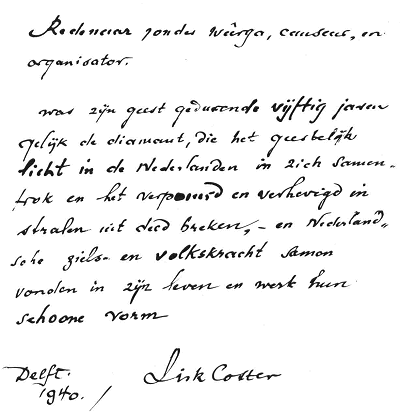 Redenaar zonder weerga, causeur, en
organisator.
was zijn geest gedurende vijftig jaren
gelijk de diamant, die het geestelijk
licht in de Nederlanden in zich samen-
trok en het verpuurd en verhevigd in
stralen uit deed breken, - en Nederland„
sche ziels- en volkskracht samen
vonden in zijn leven en werk hun
schoone vorm
Delft.
1940. /
Dirk Coster